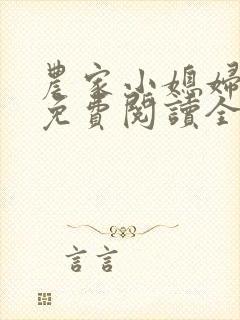 農家小媳婦
免費閱讀全
言言